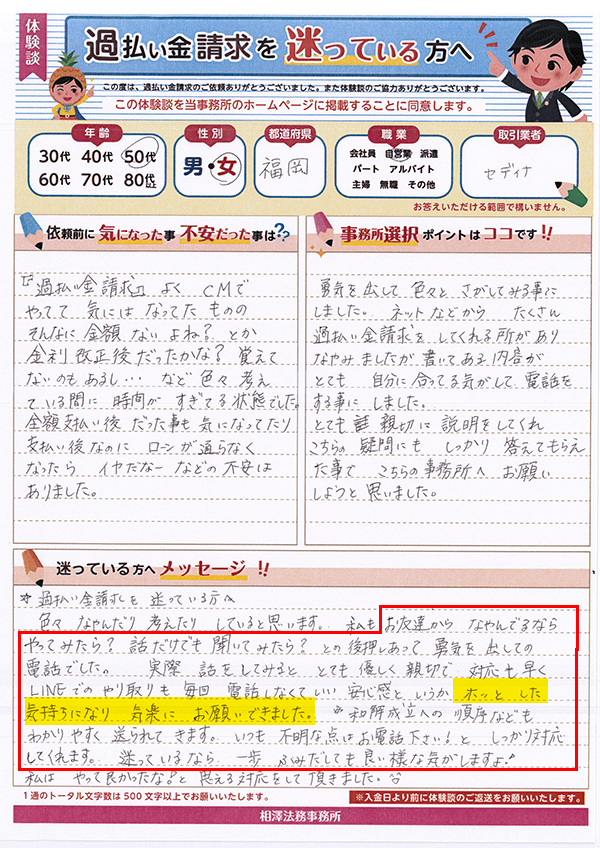 体験談
過払い金請求を迷っている方へ
この度は、過払い金請求のご依頼ありがとうございました。また体験談のご協力ありがとうございます。
この体験談を当事務所のホームページに掲載することに同意します。
年齢
30代 40代 50代
60代 70代 80代以上
性別
男・女
都道府県
福岡
職業
会社員 自営業 派遣
パート アルバイト
主婦 無職 その他
取引業者
セディナ
お答えいただける範囲で構いません。
依頼前に気になった事 不安だった事は??
『過払い金請求』よく CMで
やってて 気にはなってた ものの
そんなに 金額 ないよね? とか
金利 改正後だったかな? 覚えて
ないのもあるし… など色々 考え
ている間に 時間が すぎてる状態でした。
全額支払い後 だった事も 気になってたり
支払い後なのに ローンが通らなく
なったら イヤだなー などの不安は
ありました。
事務所選択 ポイントは ココです!!
勇気を出して 色々と さがしてみる事に
しました。 ネットなどから たくさん
過払い金請求を してくれる所が あり
なやみましたが 書いてある内容が
とても 自分に合ってる気がして 電話を
する事に しました。
とても 親切に 説明をしてくれ
こちらの 疑問にも しっかり 答えてもらえ
た事で こちらの事務所へ お願い
しようと 思いました。
迷っている方へ メッセージ!!
☆過払い金請求を 迷っている方へ
色々 なやんだり 考えたり していると思います。 私も お友達から なやんでるなら
やってみたら? 話だけでも 聞いてみたら? との後押しあって 勇気を 出しての
電話でした。 実際 話をしてみると とても 優しく 親切で 対応も 早く
LINEでの やり取りも 毎回 電話しなくていい 安心感と いうか ホッと した
気持ちになり 気楽に お願いできました。 ☆和解成立への 順序なども
わかりやすく 送られて きます。 いつも 不明な点は お電話下さい! と しっかり対応
してくれます。 迷っているなら 一歩 ふみだしても 良い様な気がしますよ♪
私は やって良かったな♪と 思える対応をして 頂きました。
1通のトータル文字数は500文字以上でお願いいたします。
※入金日より前に体験談のご返送をお願いいたします。
相澤法務事務所